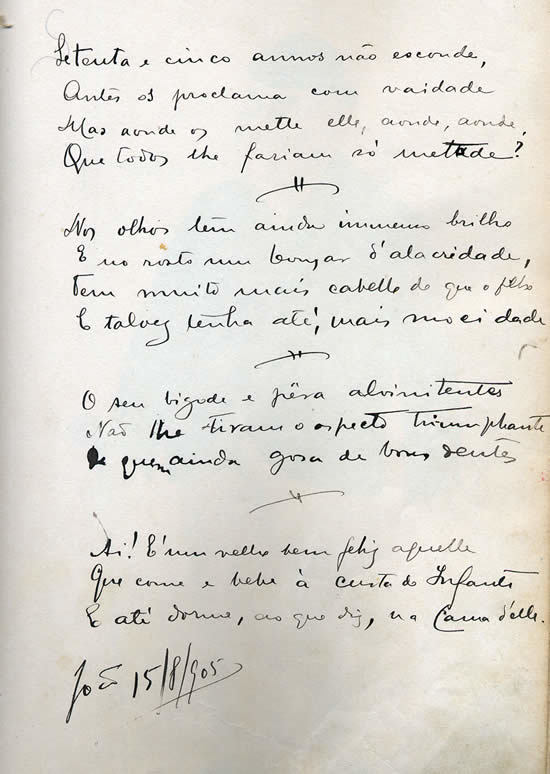 Setenta e cinco annos não esconde,
Antes os proclama com vaidade
Mas aonde os mette elle, aonde, aonde,
Que todos lhe fariam só metade?
Nos olhos tem ainda immenso brilho
E no rosto um d'alacridade,
Tem muito mais cabello do que o filho
E talvez tenha até, mais mocidade
O seu bigode e pêra alvinitentes
Não lhe tiram o aspecto triumphante
De quem ainda gosa de bons dentes
Ai! É um velho bem feliz aquelle
Que come e bebe à custa do Infante
E até dorme, ao que diz, na Cama d'elle.
João 15/8/905